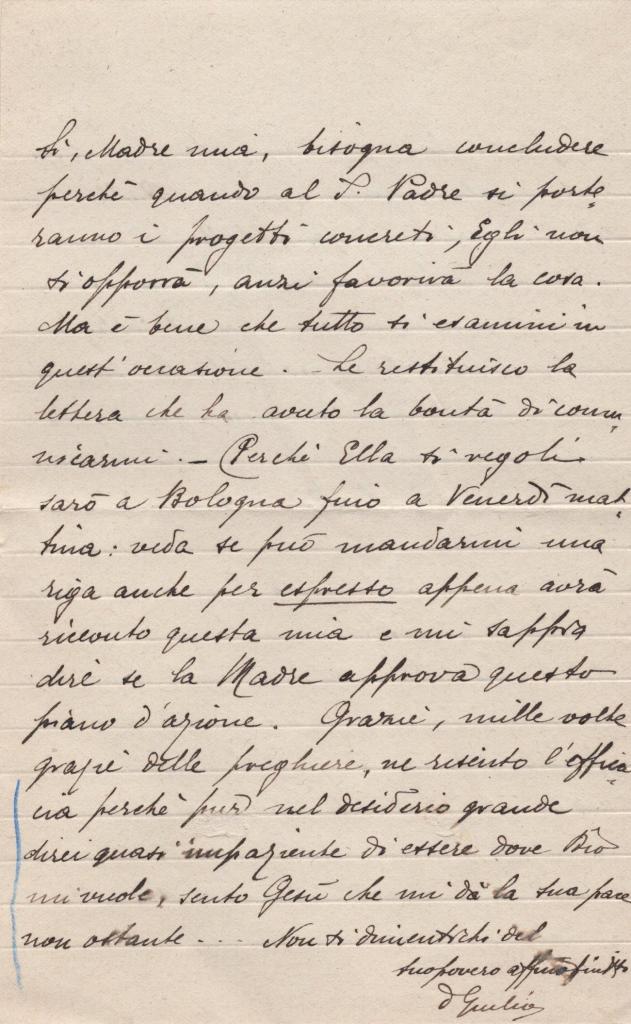 Sì, Madre mia, bisogna concludere
perchè quando al S. Padre si porte
ranno i progetti concreti, Egli non
si opporrà, anzi favorirà la cosa.
Ma è bene che tutto si esamini in
quest'occasione. Le restituisco la
lettera che ha avuto la bontà di comu
nicarmi. — Perchè Ella si regoli
sarò a Bologna fino a Venerdì mat
tina: veda se può mandarmi una
riga anche per espresso appena avrà
ricevuto questa mia e mi sappia
dire se la Madre approva questo
piano d'azione. Grazie, mille volte
grazie delle preghiere, ne risento l'effica
cia perchè pur nel desiderio grande
direi quasi impaziente di essere dove Dio
mi vuole, sento Gesù che mi dà la sua pace
non ostante... Non si dimentichi del
suo povero
d Giulio